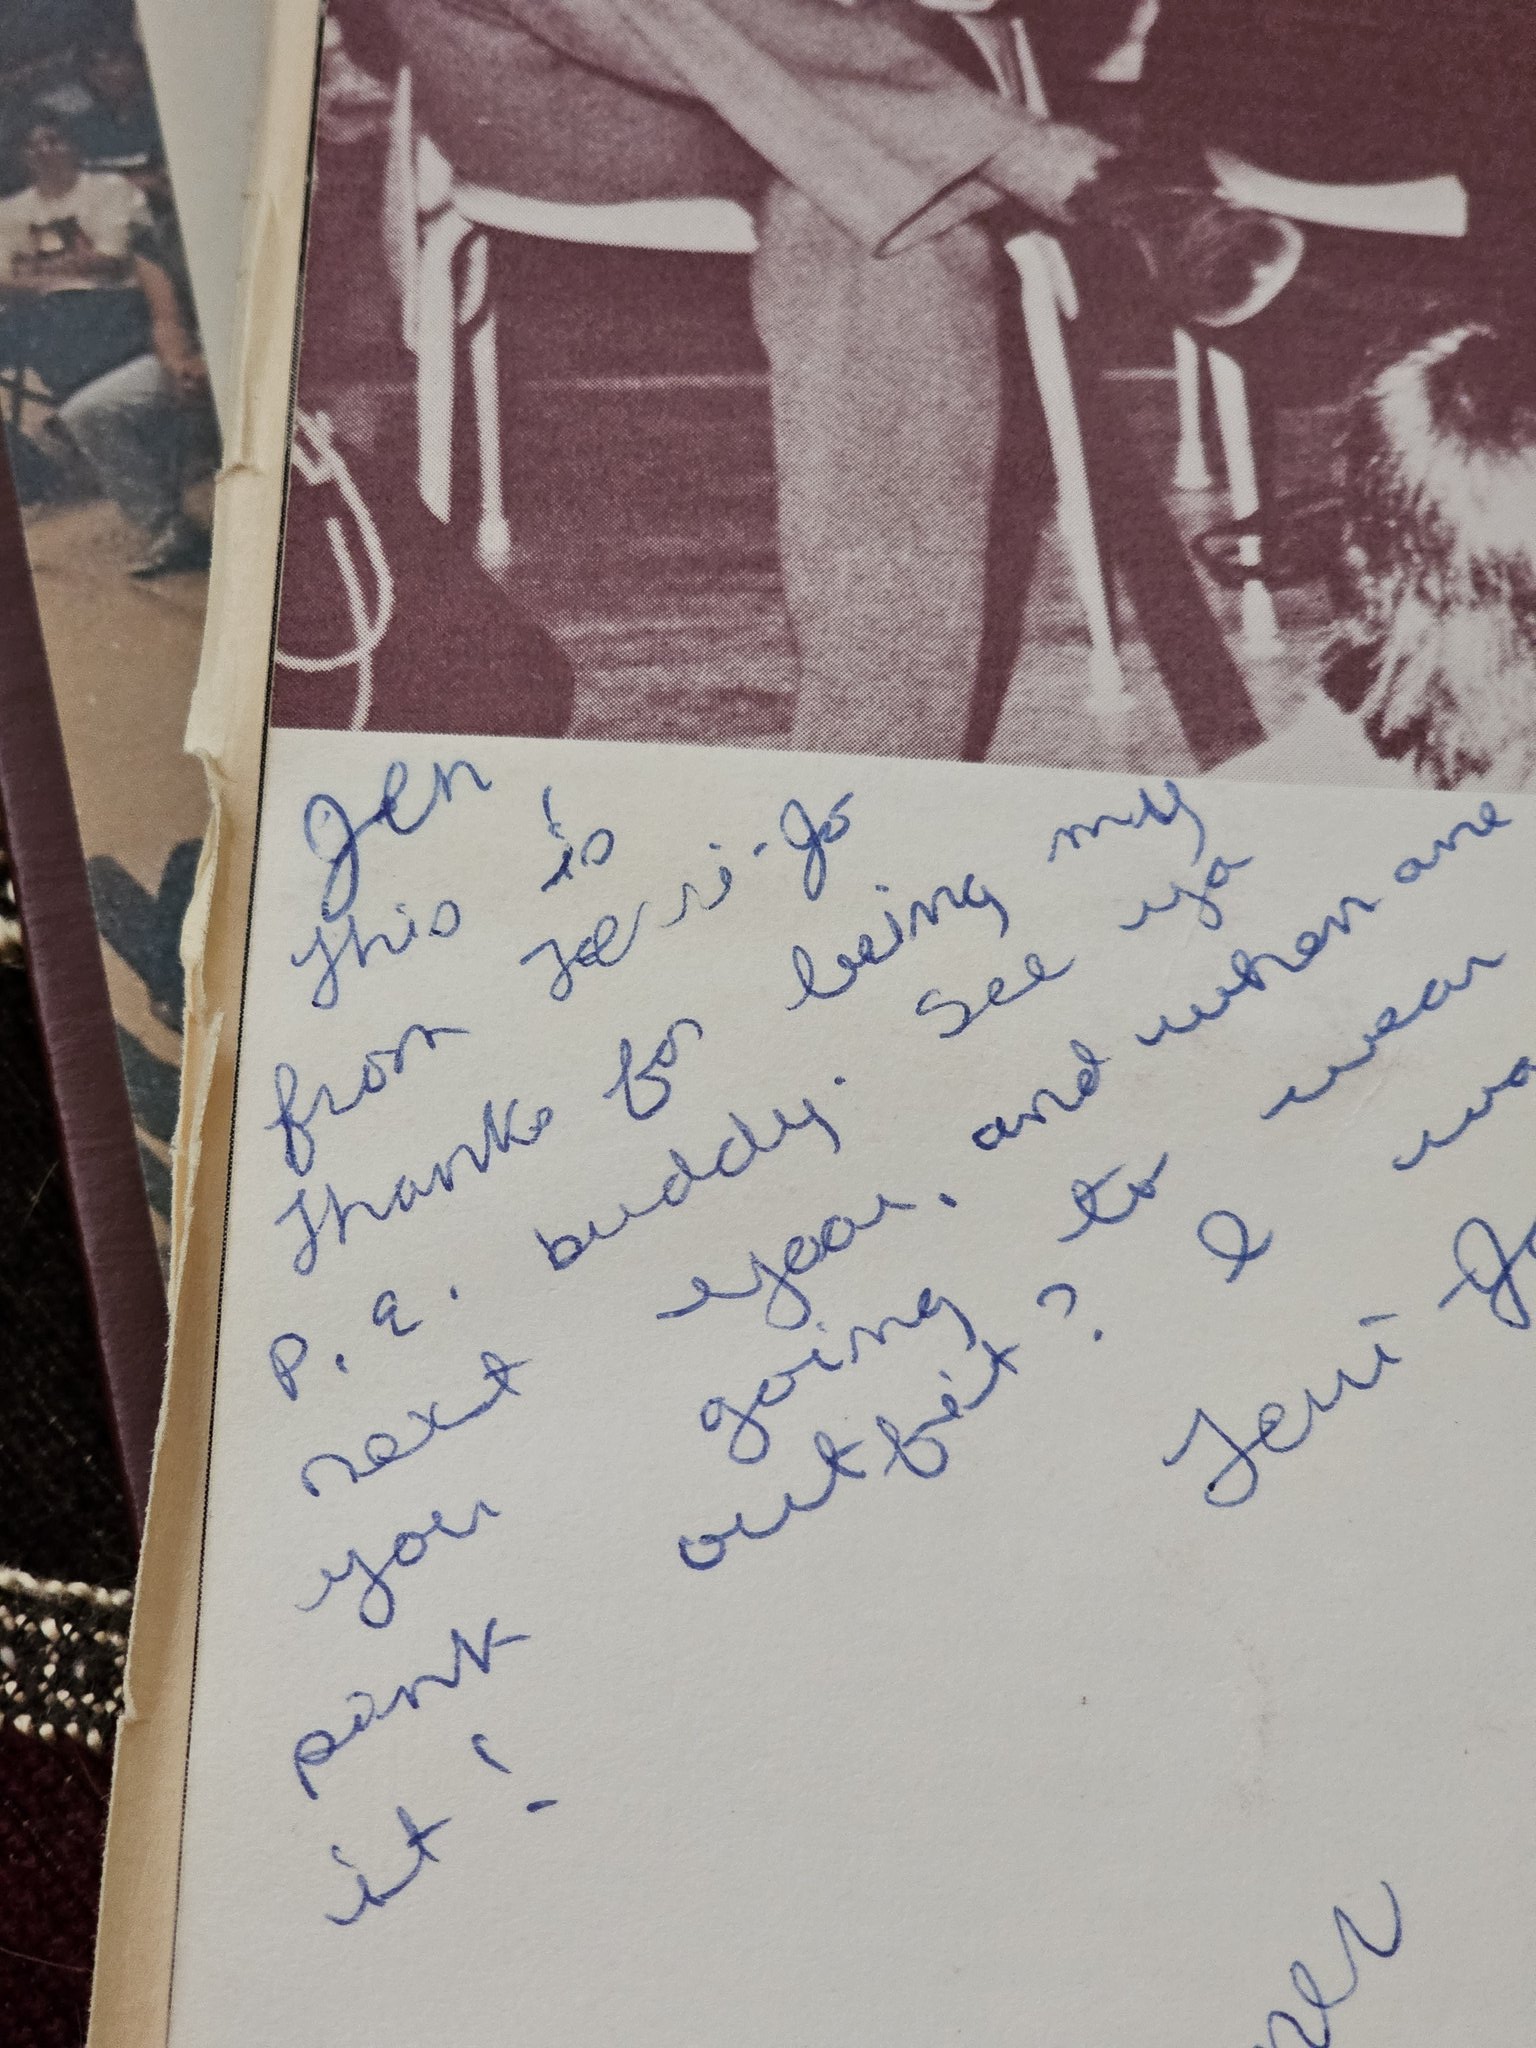 Jen,
This is
from Terri-Jo
Thanks for being my
P.e. buddy. See ya
next year. and when are
you going to wear
pink outfit? I
it! Terri-Jo